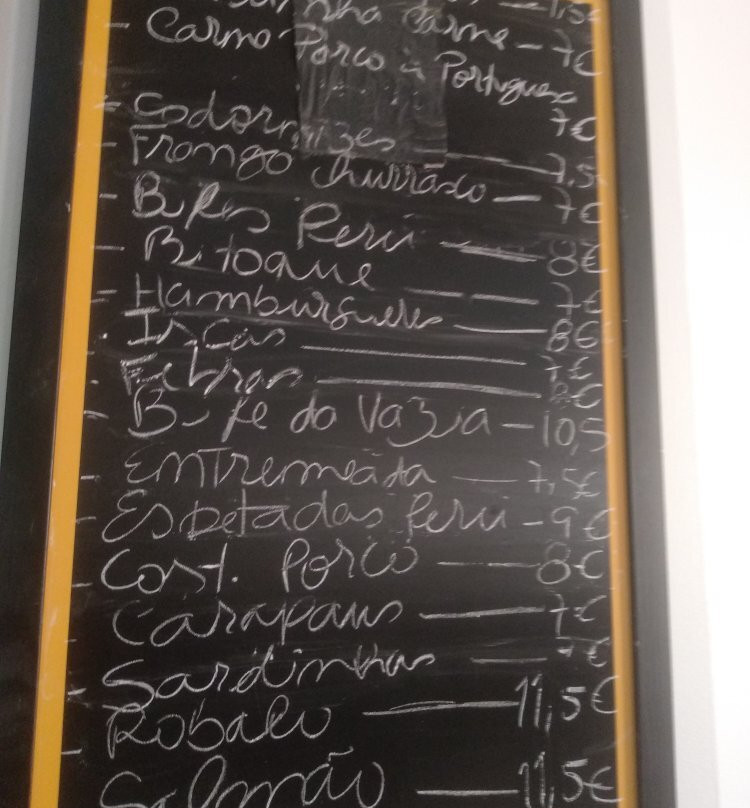 1,5€
- Carne Porco à Portuguesa
nha Carne - 7€
7€
- Codornizes — 7,5€
- Frango Churrasco — 7€
- Bifes Peru — 8€
- Bitoque — 7€
- Hamburgueres — 8€
- Iscas — 7€
- Febras — 8€
- Bife da Vazia - 10,5
- Entremeada — 7,5€
- Espetadas Peru - 9€
- Cost. Porco — 8€
- Carapaus — 7€
- Sardinhas — 7€
- Robalo — 11,5€
- Salmão — 11,5€